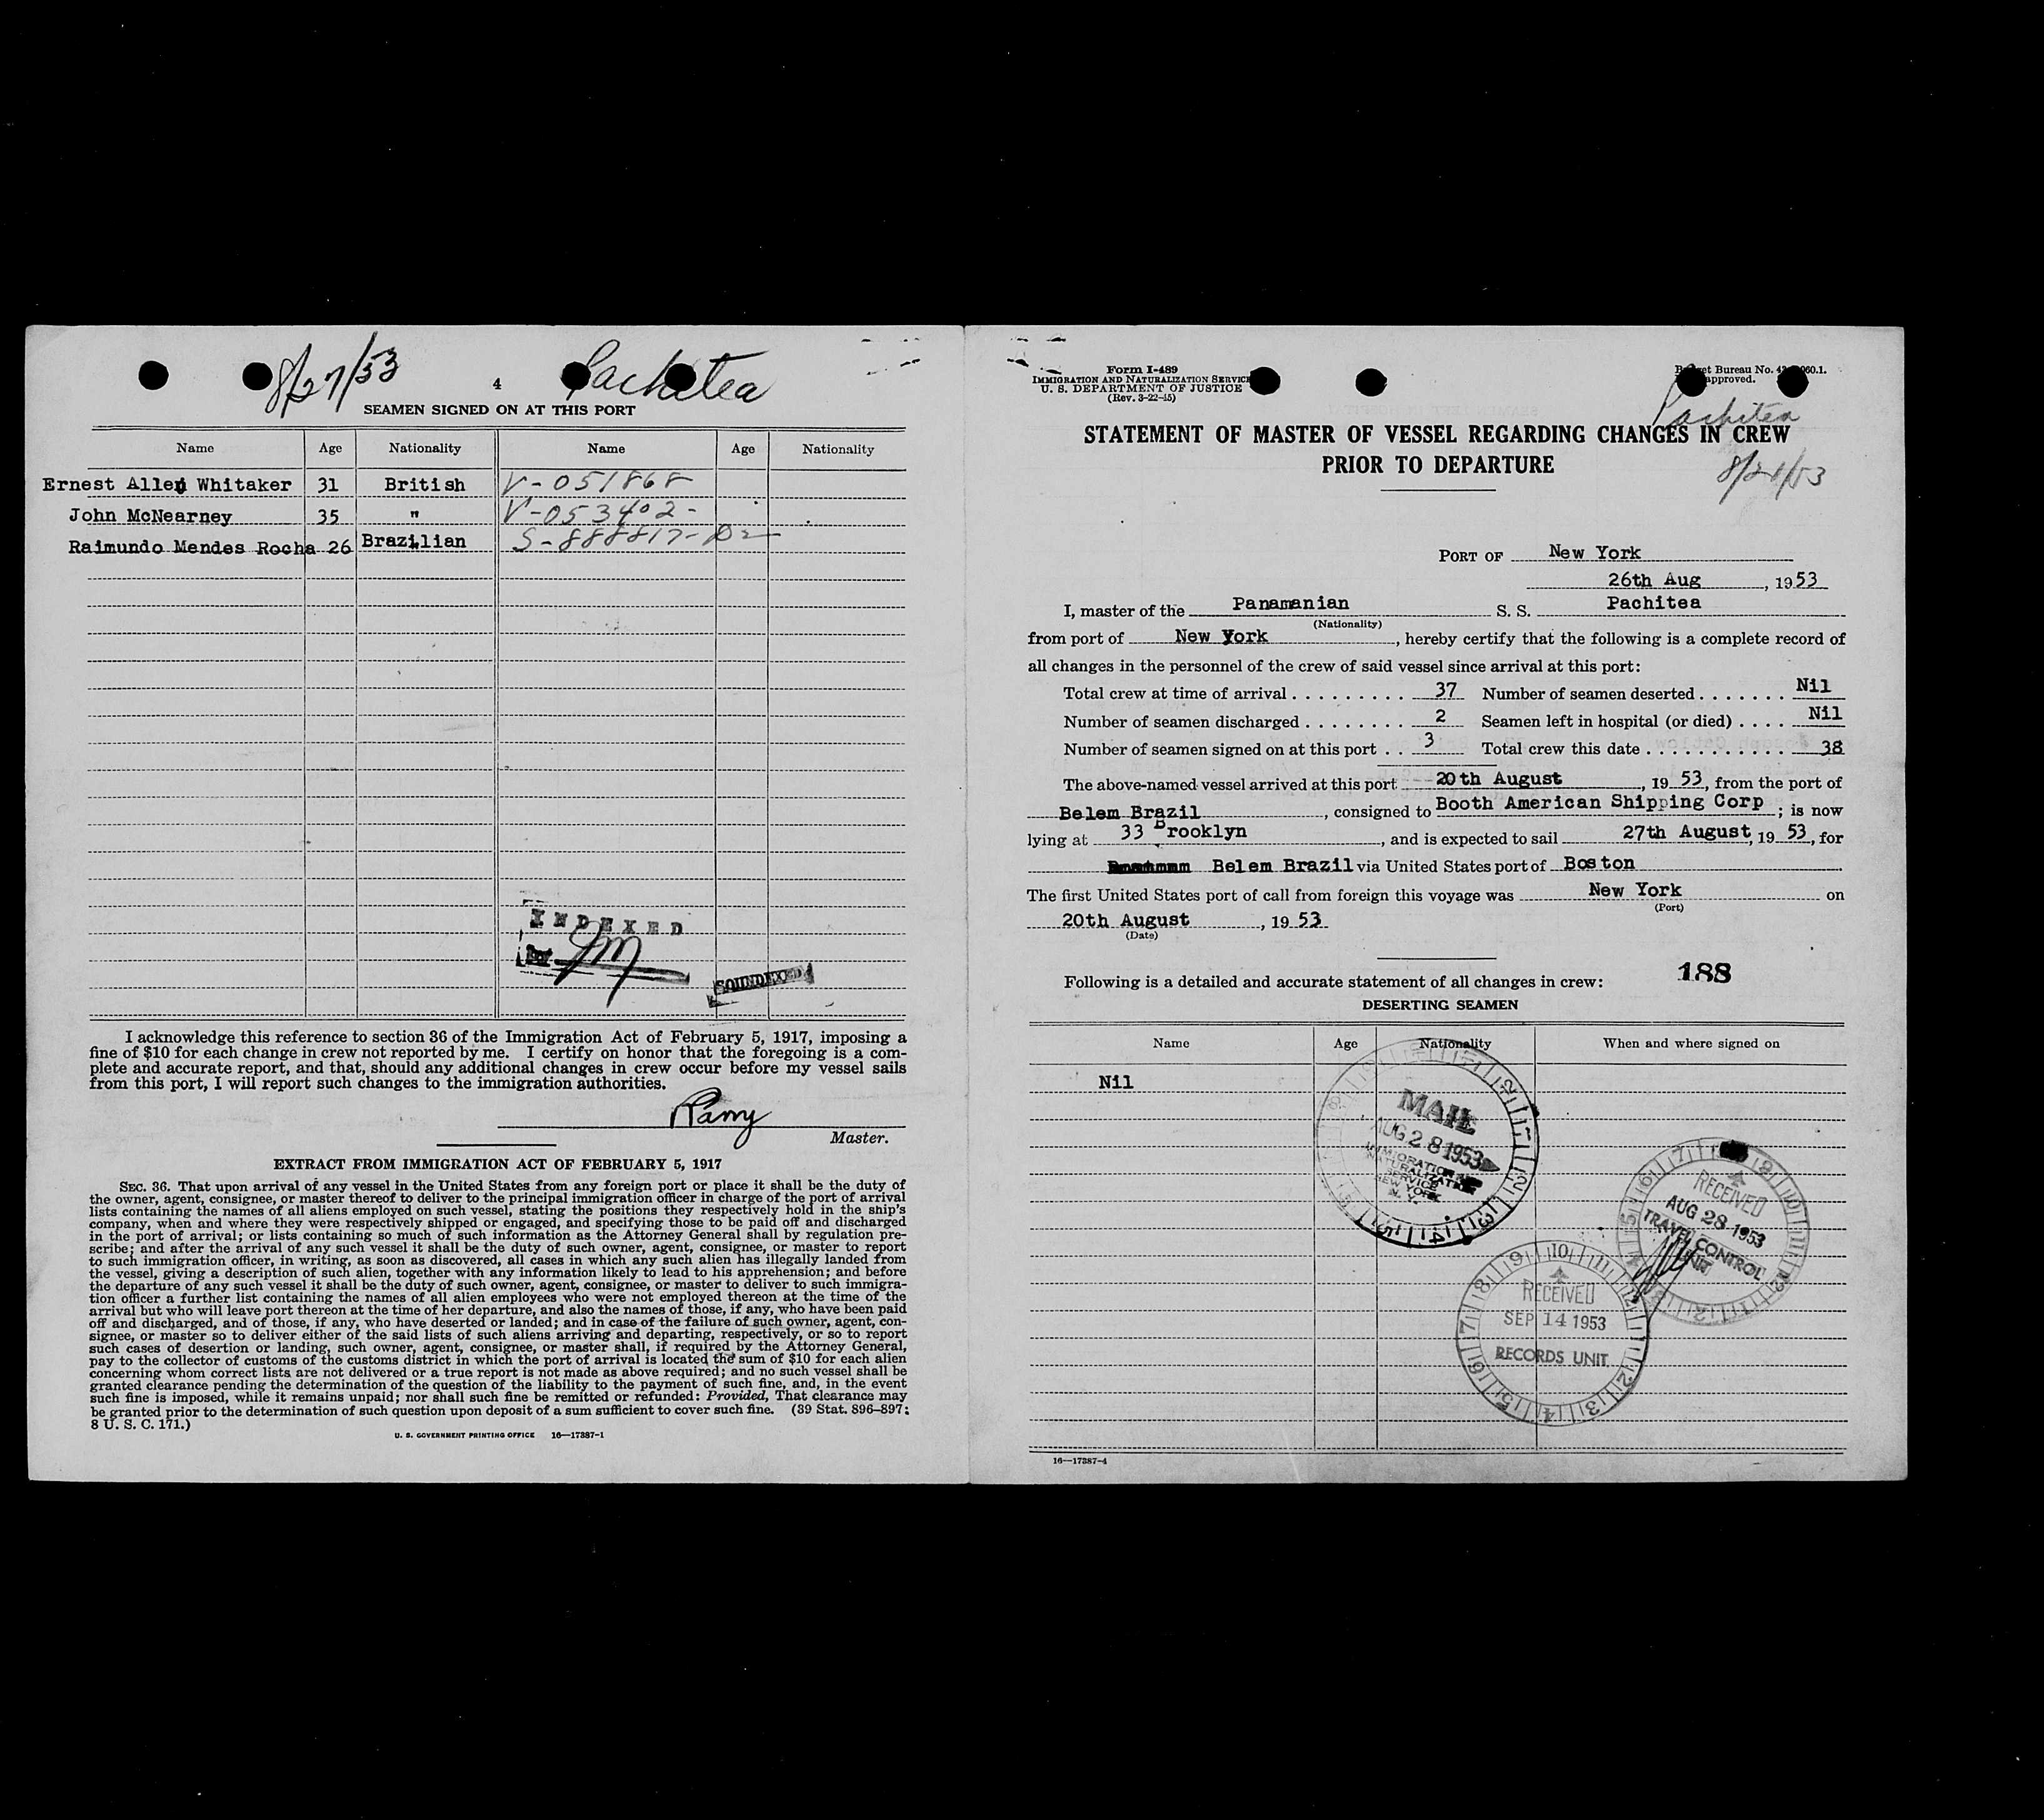 8/27/53
4
Pachitea
SEAMEN SIGNED ON AT THIS PORT
Name Age Nationality Name Age Nationality
Ernest Allen Whitaker 31 British V-051868
John McNearney 35 " V-053402-
Raimundo Mendes Rocha 26 Brazilian S-888817-D2
INDEXED
JM
SOUNDEXED
I acknowledge this reference to section 36 of the Immigration Act of February 5, 1917, imposing a
fine of $10 for each change in crew not reported by me. I certify on honor that the foregoing is a com-
plete and accurate report, and that, should any additional changes in crew occur before my vessel sails
from this port, I will report such changes to the immigration authorities.
Parry
Master.
EXTRACT FROM IMMIGRATION ACT OF FEBRUARY 5, 1917
SEC. 36. That upon arrival of any vessel in the United States from any foreign port or place it shall be the duty of
the owner, agent, consignee, or master thereof to deliver to the principal immigration officer in charge of the port of arrival
lists containing the names of all aliens employed on such vessel, stating the positions they respectively hold in the ship's
company, when and where they were respectively shipped or engaged, and specifying those to be paid off and discharged
in the port of arrival; or lists containing so much of such information as the Attorney General shall by regulation pre-
scribe; and after the arrival of any such vessel it shall be the duty of such owner, agent, consignee, or master to report
to such immigration officer, in writing, as soon as discovered, all cases in which any such alien has illegally landed from
the vessel, giving a description of such alien, together with any information likely to lead to his apprehension; and before
the departure of any such vessel it shall be the duty of such owner, agent, consignee, or master to deliver to such immigra-
tion officer a further list containing the names of all alien employees who were not employed thereon at the time of the
arrival but who will leave port thereon at the time of her departure, and also the names of those, if any, who have been paid
off and discharged, and of those, if any, who have deserted or landed; and in case of the failure of such owner, agent, con-
signee, or master so to deliver either of the said lists of such aliens arriving and departing, respectively, or so to report
such cases of desertion or landing, such owner, agent, consignee, or master shall, if required by the Attorney General,
pay to the collector of customs of the customs district in which the port of arrival is located the sum of $10 for each alien
concerning whom correct lists are not delivered or a true report is not made as above required; and no such vessel shall be
granted clearance pending the determination of the question of the liability to the payment of such fine, and, in the event
such fine is imposed, while it remains unpaid; nor shall such fine be remitted or refunded: Provided, That clearance may
be granted prior to the determination of such question upon deposit of a sum sufficient to cover such fine. (39 Stat. 896-897;
8 U. S. C. 171.)
U. S. GOVERNMENT PRINTING OFFICE 16—17387-1
Form I-489
IMMIGRATION AND NATURALIZATION SERVICE
U. S. DEPARTMENT OF JUSTICE
(Rev. 3-22-45)
Bureau No.
approved.
Pachitea
STATEMENT OF MASTER OF VESSEL REGARDING CHANGES IN CREW
PRIOR TO DEPARTURE
PORT OF New York
26th Aug, 1953
I, master of the Panamanian S. S. Pachitea
(Nationality)
from port of New York, hereby certify that the following is a complete record of
all changes in the personnel of the crew of said vessel since arrival at this port:
Total crew at time of arrival . . . . . . . . . 37 Number of seamen deserted . . . . . . . Nil
Number of seamen discharged . . . . . . . . 2 Seamen left in hospital (or died) . . . . Nil
Number of seamen signed on at this port . . 3 Total crew this date . . . . . . . . . . . 38
The above-named vessel arrived at this port 20th August, 1953, from the port of
Belem Brazil, consigned to Booth American Shipping Corp; is now
lying at 33 Brooklyn, and is expected to sail 27th August, 1953, for
Belem Brazil via United States port of Boston
The first United States port of call from foreign this voyage was New York on
(Port)
20th August, 1953
(Date)
Following is a detailed and accurate statement of all changes in crew:
188
DESERTING SEAMEN
Name Age Nationality When and where signed on
Nil
MAIL
AUG 28 1953
IMMIGRATION &
NATURALIZATION
SERVICE
NEW YORK
N. Y.
RECEIVED
AUG 28 1953
TRAVEL CONTROL
UNIT
RECEIVED
SEP 14 1953
RECORDS UNIT
16—17387-4